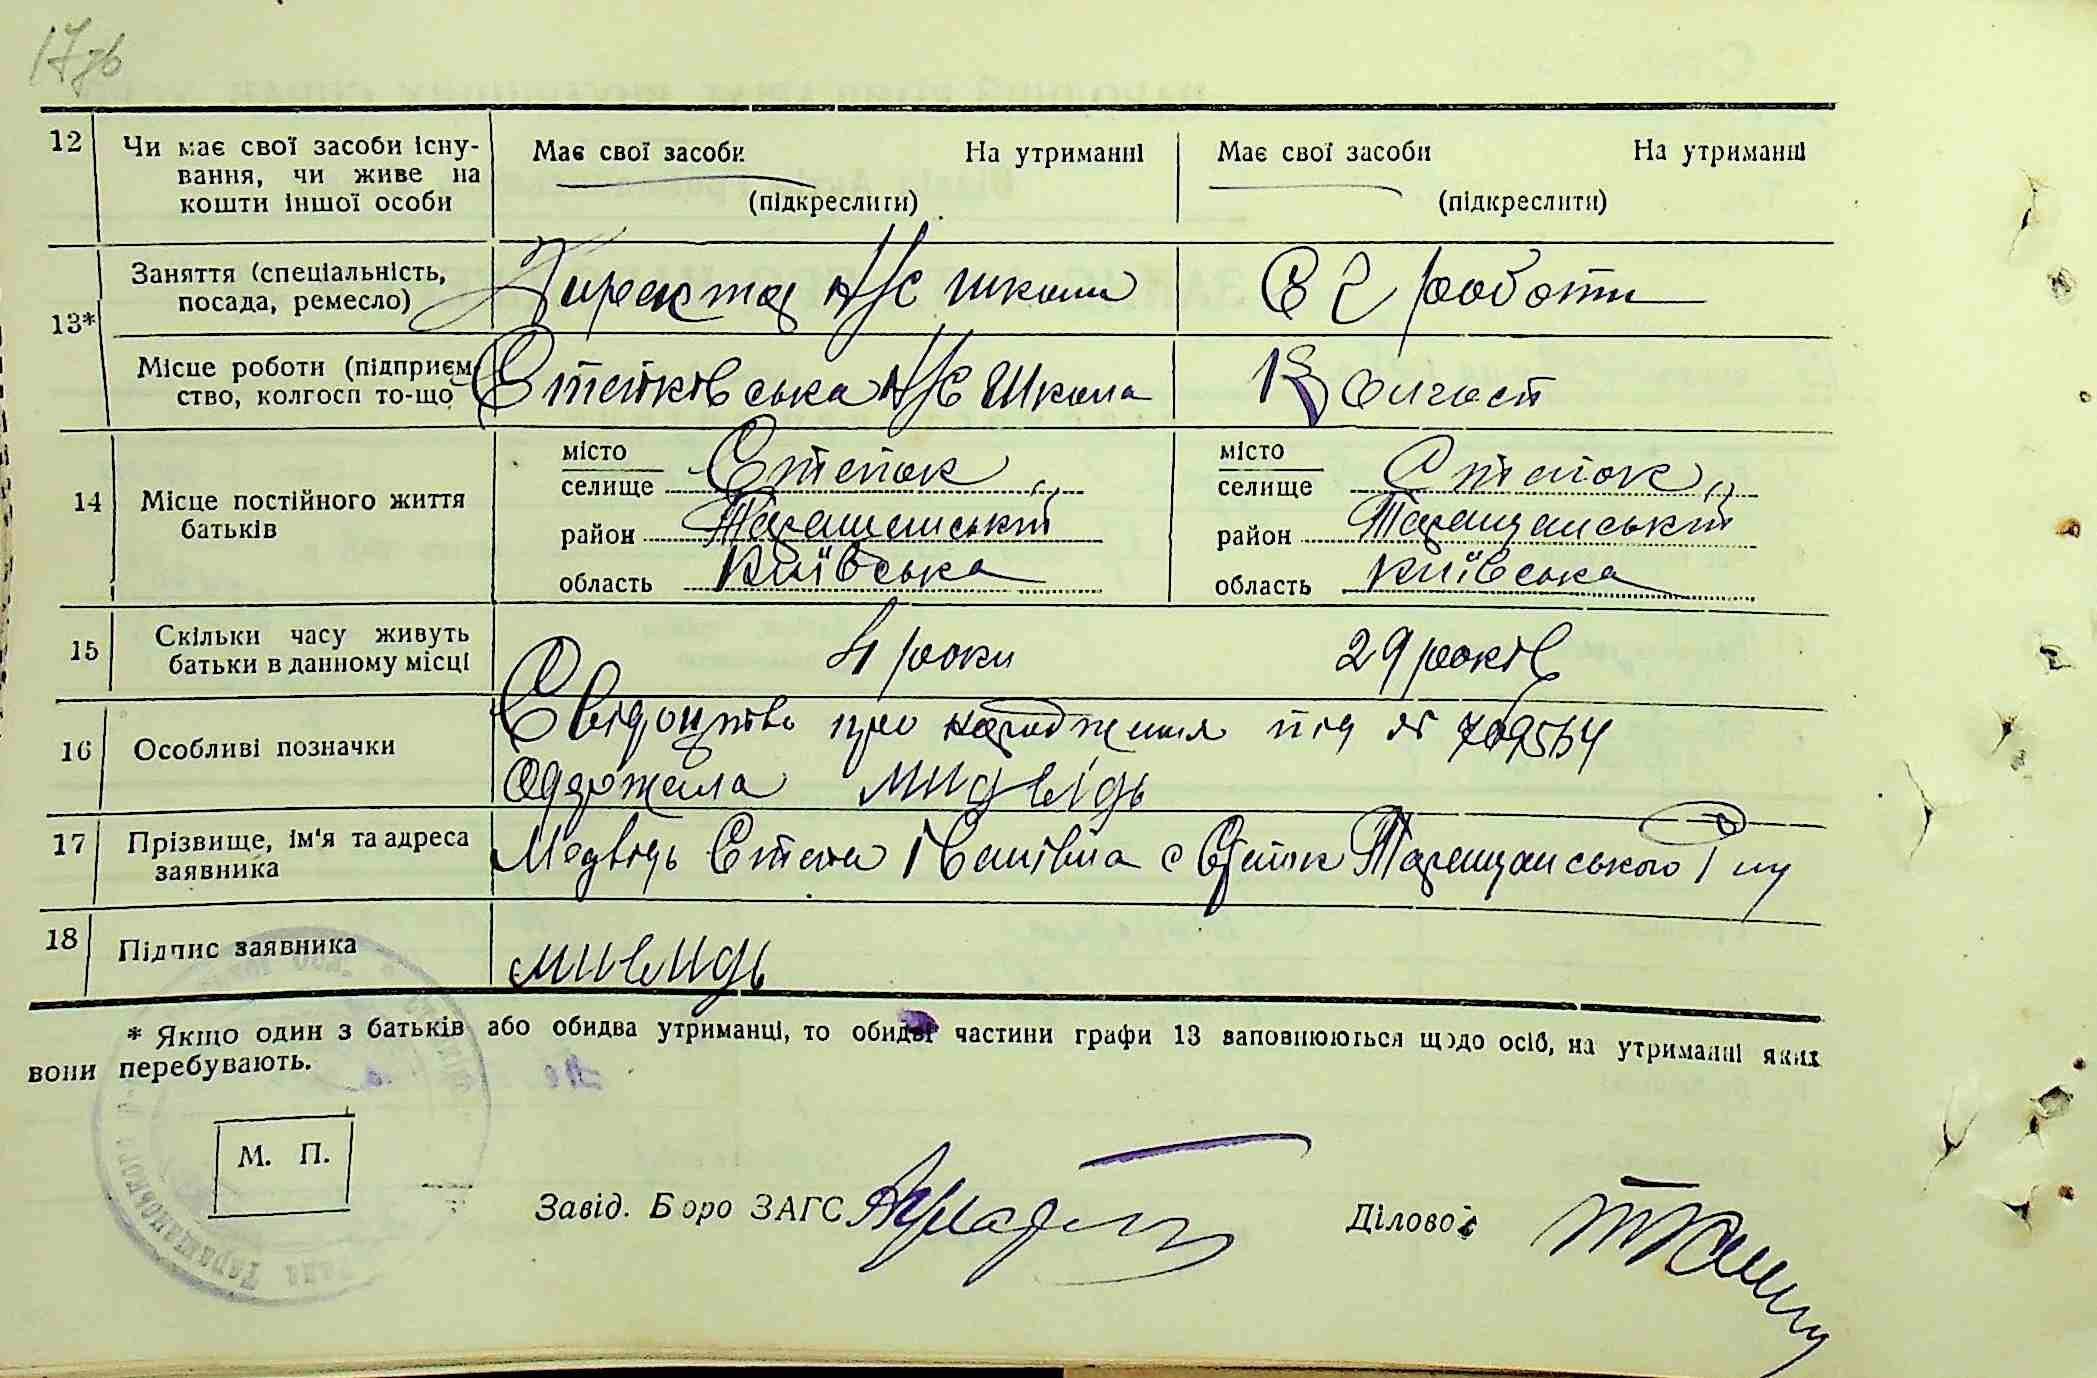 17зв
12 Чи має свої засоби існу-
вання, чи живе на
кошти іншої особи
Має свої засоби На утриманні
(підкреслити)
Має свої засоби На утриманні
(підкреслити)
13*
Заняття (спеціальність,
посада, ремесло)
Директор Н/С школи
С Г роботи
Місце роботи (підприєм
ство, колгосп то-що
Степківська Н/С Школа
Колгосп
14 Місце постійного життя
батьків
місто
селище Степок
район Таращанський
область Київська
місто
селище Степок
район Таращанський
область Київська
15 Скільки часу живуть
батьки в данному місці
4 роки
29 років
16 Особливі позначки
Свідоцтво про народження під №
Одержала мидвідь
17 Прізвище, ім'я та адреса
заявника
Медвідь Степа Іванівна с Степок Таращанського Р ну
18 Підпис заявника
мивидь
* Якщо один з батьків або обидва утриманці, то обидві частини графи 13 заповнюються щодо осіб, на утриманні яких
вони перебувають.
М. П.
Завід. Бюро ЗАГС
Діловод